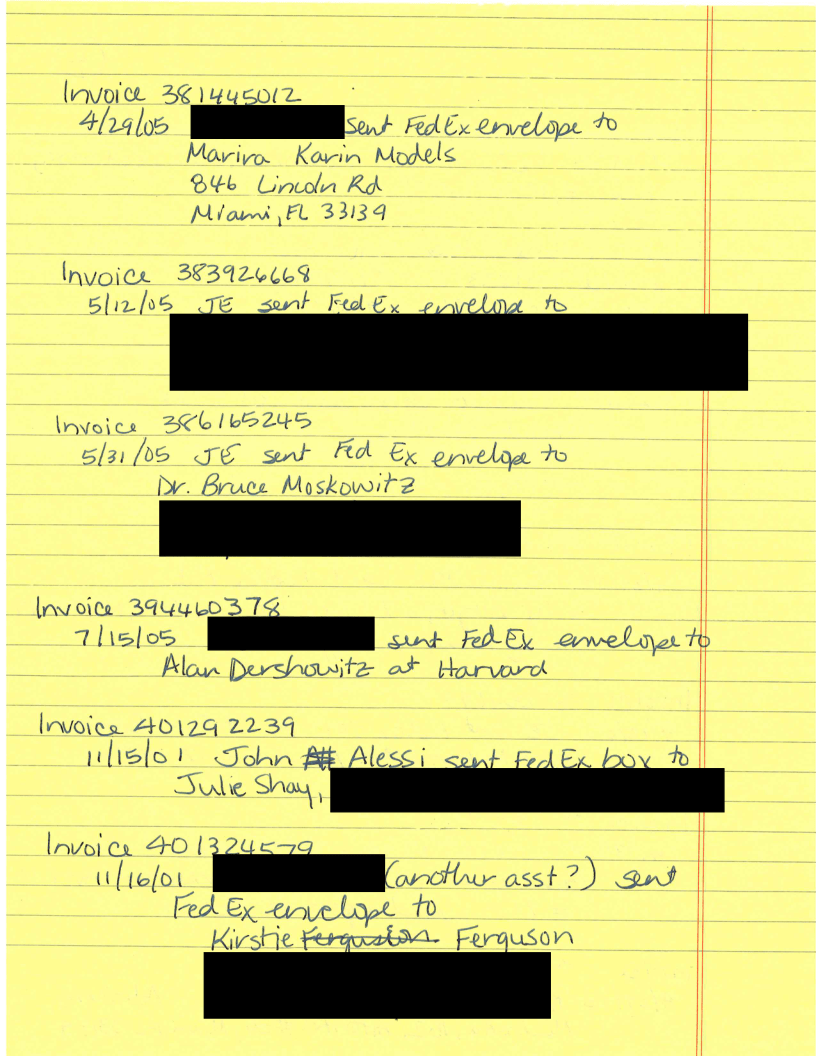 Invoice 381445012
4/29/05 sent FedEx envelope to
Marira Karin Models
846 Lincoln Rd
Miami, FL 33139
Invoice 383926668
5/12/05 JE sent Fed Ex envelope to
Invoice 386165245
5/31/05 JE sent Fed Ex envelope to
Dr. Bruce Moskowitz
Invoice 394460378
7/15/05 sent FedEx envelope to
Alan Dershowitz at Harvard
Invoice 401292239
11/15/01 John Alessi sent FedEx box to
Julie Shay,
Invoice 401324579
11/16/01 (another asst?) sent
FedEx envelope to
Kirstie Ferguson